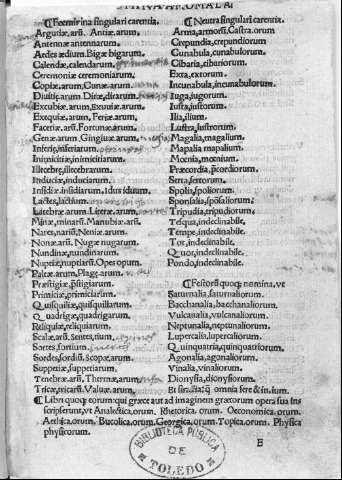 MINA ANOMALA.
¶ Foeminina singulari carentia.
Argutiæ, arũ. Antiæ. arum.
Antennæ antennarum.
Aedes ædium. Bigæ bigarum.
Calendæ, calendarum.
Ceremoniæ ceremoniarum.
Copiæ. arum. Cunæ. arum.
Diuitiæ. arum. Diræ, dirarum.
Excubiæ. arum, Exuuiæ. arum.
Exequiæ, arum, Feriæ. arum.
Facetiæ. arũ. Fortunæ. arum.
Genæ. arum, Gingiuæ. arum.
Inferiæ, inferiarum
Inimicitiæ, inimicitiarum
Illecebræ, illecebrarum.
Induciæ, induciarum.
Insidiæ. insidiarum, Idus iduum.
Lactes, lactium
Latebræ. arum. Literæ. arum,
Minæ, minarũ. Manubiæ. arũ.
Nares, nariũ. Neniæ. arum.
Nonæ. arũ. Nugæ nugarum.
Nundinæ, nundinarum.
Nuptiæ, nuptiarũ. Opes opum.
Paleæ. arum. Plagæ. arum.
Præstigiæ, p̃stigiarum.
Primiciæ, primiciarum.
Quisquiliæ, quisquiliarum.
Quadrigæ, quadrigarum.
Reliquiæ, reliquiarum.
Scalæ. arũ. Sentes, tium.
Sortes, sortium.
Sordes, sordiũ. Scopæ. arum.
Suppetiæ, suppetiarum.
Tenebræ. arũ, Thermæ. arum,
Tricæ, tricarũ. Valuæ. arum,
¶ Neutra singulari carentia.
Arma, armorũ. Castra. orum
Crepundia, crepundiorum
Cunabula, cunabulorum.
Cibaria, cibariorum.
Exta, extorum.
Incunabula, incunabulorum.
Iuga, iugorum.
Iusta, iustorum.
Ilia, ilium.
Lustra, lustrorum.
Magalia, magalium.
Mapalia mapalium.
Mœnia, mœnium.
Præcordia, p̃cordiorum.
Serta, sertorum.
Spolia, spoliorum.
Sponsalia, spõsaliorum.
Tripudia, tripudiorum.
Tesqua, indeclinabile.
Tempe, indeclinabile.
Tot, indeclinabile.
Quot, indeclinabile.
Pondo, indeclinabile.
¶ Festorũ quoq; nomina, vt
Saturnalia, saturnaliorum.
Bacchanalia, bacchanaliorum.
Vulcanalia, vulcanaliorum.
Neptunalia, neptunaliorum.
Lupercalia, lupercaliorum.
Quinquatria, quinquatriorum.
Agonalia, agonaliorum.
Vinalia, vinaliorum.
Dionysia, dionysiorum.
¶ Libri quoq; eorum qui græce aut ad imaginem græcorum opera sua ins
scripserunt, vt Analectica. orum. Rhetorica. orum. Oeconomica. orum.
Aethica. orum. Bucolica. orum. Georgica. orum. Topica. orum. Physica
physicorum.
E
BIBLIOTECA PÚBLICA
DE
TOLEDO